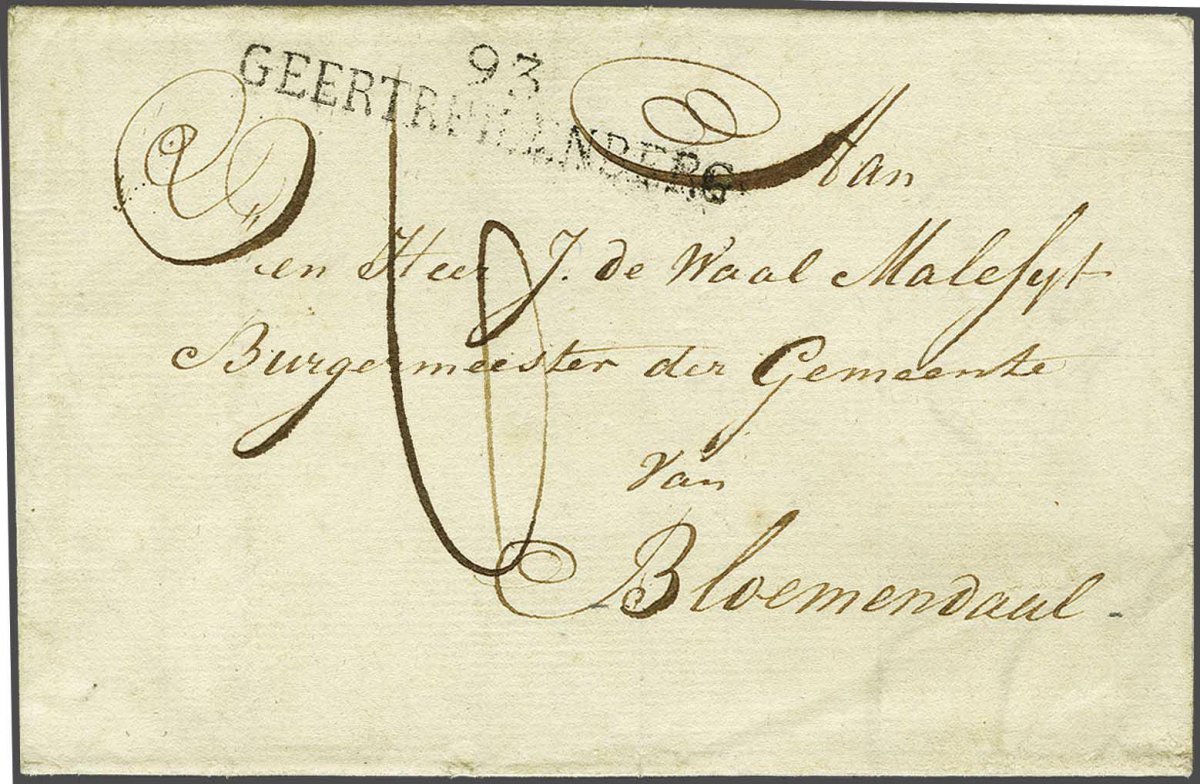 93
GEERTRUIDENBERG
Aan
Den Heer J. de Waal Malefyt
Burgermeester der Gemeente
van
Bloemendaal